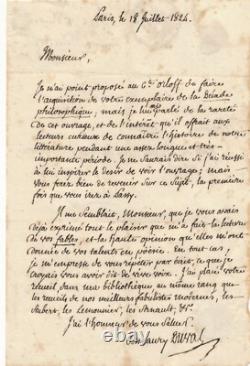 Paris, le 18 Juillet 1824.
Monsieur,
Je n'ai point proposé au Cte. Orloff de faire
l'acquisition de votre exemplaire de la Décade
philosophique, mais je lui ai parlé de la rareté
de cet ouvrage, et de l'intérêt qu'il offrait aux
lecteurs curieux de connaître l'histoire de notre
littérature pendant une assez longue et très-
importante période. Je ne saurais dire si j'ai réussi
à lui inspirer le désir de voir l'ouvrage; mais
vous ferez bien de revenir sur ce sujet, la première
fois que vous irez à
Il me semblait, Monsieur, que je vous avais
déjà exprimé tout le plaisir que m'a fait la lecture
de vos fables, et la haute opinion qu'elles m'ont
donnée de vos talents en poésie. En tout cas,
je m'empresse de vous répéter par écrit, ce que je
croyais vous avoir dit de vive voix. J'ai placé votre
recueil dans ma bibliothèque au même rang que
les recueils de nos meilleurs fabulistes modernes, les
Aubert, les Lemonnier, les &c.
J'ai l'honneur de vous saluer.
Amaury Duval